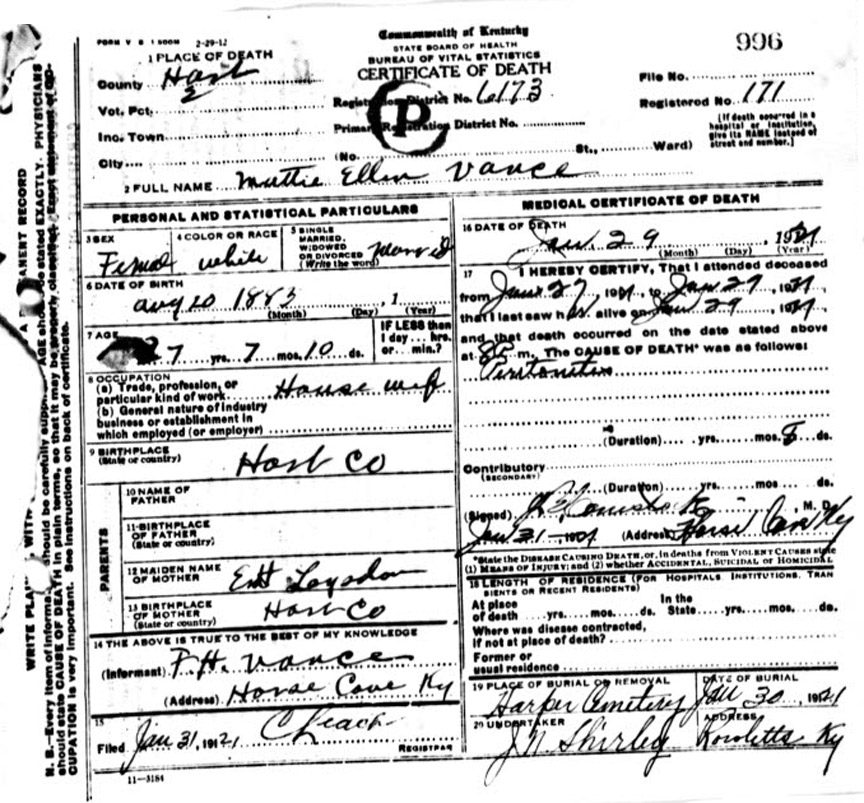 Commonwealth of Kentucky
996
FORM V S 1 500M 2-29-12
STATE BOARD OF HEALTH
BUREAU OF VITAL STATISTICS
CERTIFICATE OF DEATH
1 PLACE OF DEATH
County Hart
Vot. Pct. 2
Inc. Town
City (No. St., Ward)
Registration District No. 6173
Primary Registration District No.
P
File No.
Registered No. 171
[If death occurred in a
hospital or institution,
give its NAME instead of
street and number.]
2 FULL NAME Mattie Ellen Vance
PERSONAL AND STATISTICAL PARTICULARS
3 SEX
Female
4 COLOR OR RACE
white
5 SINGLE
MARRIED,
WIDOWED
OR DIVORCED
(Write the word)
Married
6 DATE OF BIRTH
Aug 20 1883, 1
(Month) (Day) (Year)
7 AGE
7 yrs. 7 mos. 10 ds.
IF LESS than
1 day... hrs.
or... min.?
8 OCCUPATION
(a) Trade, profession, or
particular kind of work House wif
(b) General nature of industry
business or establishment in
which employed (or employer)
9 BIRTHPLACE
(State or country)
Hart Co
PARENTS
10 NAME OF
FATHER
11 BIRTHPLACE
OF FATHER
(State or country)
12 MAIDEN NAME
OF MOTHER
Logsdon
13 BIRTHPLACE
OF MOTHER
(State or country)
Hart Co
14 THE ABOVE IS TRUE TO THE BEST OF MY KNOWLEDGE
(Informant) F. H. Vance
(Address) Horse Cave Ky
15
Filed Jan 31, 1921
C Leach
REGISTRAR
11-3184
MEDICAL CERTIFICATE OF DEATH
16 DATE OF DEATH
Jan. 29, 1921
(Month) (Day) (Year)
17 I HEREBY CERTIFY, That I attended deceased
from Jan 27 1921, to Jan 29, 1921
that I last saw her alive on Jan 29, 1921
and that death occurred on the date stated above
at 8 P. m. The CAUSE OF DEATH* was as follows:
Peritonitis
(Duration) yrs. mos. 8 ds.
Contributory
(SECONDARY)
(Duration) yrs. mos ds.
(Signed) , M. D.
Jan 31-1921 (Address) Horse Cave Ky
*State the DISEASE CAUSING DEATH, or, in deaths from VIOLENT CAUSES state
(1) MEANS OF INJURY; and (2) whether ACCIDENTAL, SUICIDAL OR HOMICIDAL
18 LENGTH OF RESIDENCE (FOR HOSPITALS, INSTITUTIONS, TRAN
SIENTS OR RECENT RESIDENTS)
At place
of death yrs. mos. ds.
In the
State yrs. mos. ds.
Where was disease contracted,
if not at place of death?
Former or
usual residence
19 PLACE OF BURIAL OR REMOVAL
Harper Cemetery
DATE OF BURIAL
Jan 30, 1921
20 UNDERTAKER
J. N Shirley
ADDRESS
Rowletts Ky
WRITE PLAI WITH A PERMANENT RECORD
N. B.—Every item of informa should be carefully supp AGE sho be stated EXACTLY. PHYSICIANS
should state CAUSE OF DEATH in plain terms, so that it may be properly classified. Exact statement of OC-
CUPATION is very important. See instructions on back of certificate.